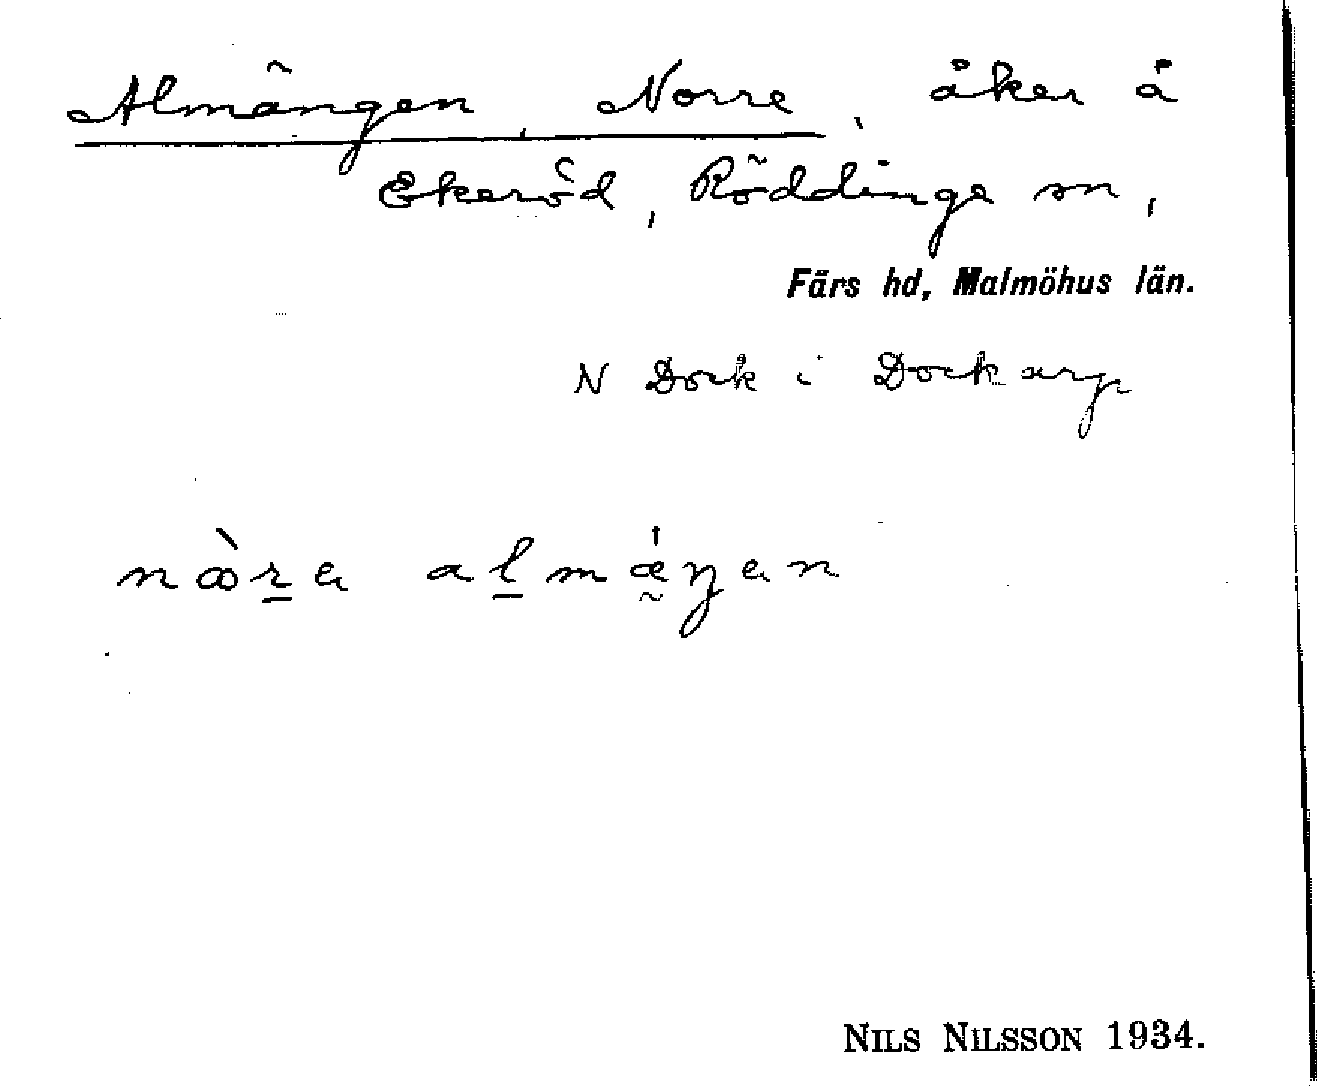 Almängen, Norre, åker å
Ekeröd, Röddinge sn,
Färs hd, Malmöhus län.
N Dock i Dockarp
nꝏ̀r̲a al̲mǽ̰ŋen
NILS NILSSON 1934.